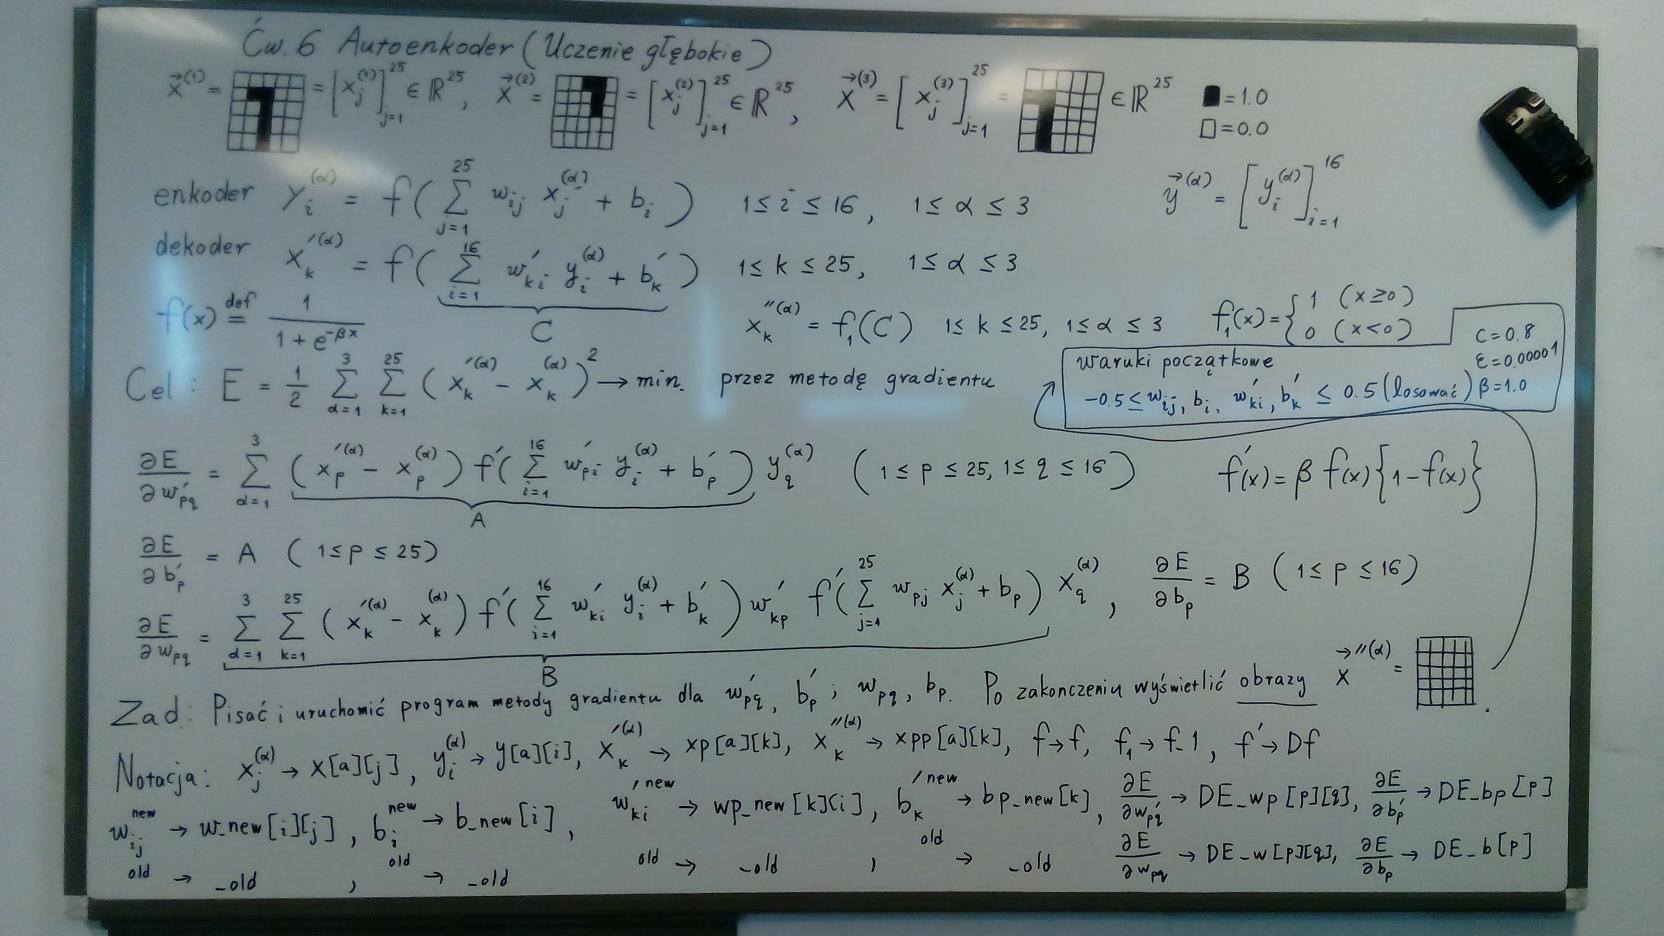 Ćw. 6 Autoenkoder (Uczenie głębokie)
x⃗⁽¹⁾ = = [x_j^(1)]_{j=1}^{25} ∈ ℝ^25, x⃗⁽²⁾ = = [x_j^(2)]_{j=1}^{25} ∈ ℝ^25, x⃗⁽³⁾ = [x_j^(3)]_{j=1}^{25} = ∈ ℝ^25 ■ = 1.0
□ = 0.0
enkoder y_i^(α) = f( Σ_{j=1}^{25} w_ij x_j^(α) + b_i ) 1 ≤ i ≤ 16, 1 ≤ α ≤ 3 y⃗^(α) = [y_i^(α)]_{i=1}^{16}
dekoder x'_k^(α) = f( Σ_{i=1}^{16} w'_ki y_i^(α) + b'_k ) 1 ≤ k ≤ 25, 1 ≤ α ≤ 3
C
f(x) =^def 1 / (1 + e^{-βx}) x''_k^(α) = f_1(C) 1 ≤ k ≤ 25, 1 ≤ α ≤ 3 f_1(x) = { 1 (x ≥ 0) 0 (x < 0)
Cel: E = 1/2 Σ_{α=1}^{3} Σ_{k=1}^{25} ( x'_k^(α) - x_k^(α) )^2 → min. przez metodę gradientu
waruki początkowe c = 0.8
ε = 0.00001
-0.5 ≤ w_ij, b_i, w'_ki, b'_k ≤ 0.5 (losować) β = 1.0
∂E/∂w'_pq = Σ_{α=1}^{3} ( x'_p^(α) - x_p^(α) ) f'( Σ_{i=1}^{16} w'_pi y_i^(α) + b'_p ) y_q^(α) ( 1 ≤ p ≤ 25, 1 ≤ q ≤ 16 ) f'(x) = β f(x){1 - f(x)}
A
∂E/∂b'_p = A ( 1 ≤ p ≤ 25 )
∂E/∂w_pq = Σ_{α=1}^{3} Σ_{k=1}^{25} ( x'_k^(α) - x_k^(α) ) f'( Σ_{i=1}^{16} w'_ki y_i^(α) + b'_k ) w'_kp f'( Σ_{j=1}^{25} w_pj x_j^(α) + b_p ) x_q^(α), ∂E/∂b_p = B ( 1 ≤ p ≤ 16 )
B
Zad: Pisać i uruchomić program metody gradientu dla w'_pq, b'_p ; w_pq, b_p. Po zakonczeniu wyświetlić obrazy x⃗''^(α) = .
Notacja: x_j^(α) → x[a][j], y_i^(α) → y[a][i], x'_k^(α) → xp[a][k], x''_k^(α) → xpp[a][k], f → f, f_1 → f_1, f' → Df
w_ij^new → w_new[i][j], b_i^new → b_new[i], w'_ki^new → wp_new[k][i], b'_k^new → bp_new[k], ∂E/∂w'_pq → DE_wp[p][q], ∂E/∂b'_p → DE_bp[p]
old → _old , old → _old old → _old , old → _old ∂E/∂w_pq → DE_w[p][q], ∂E/∂b_p → DE_b[p]